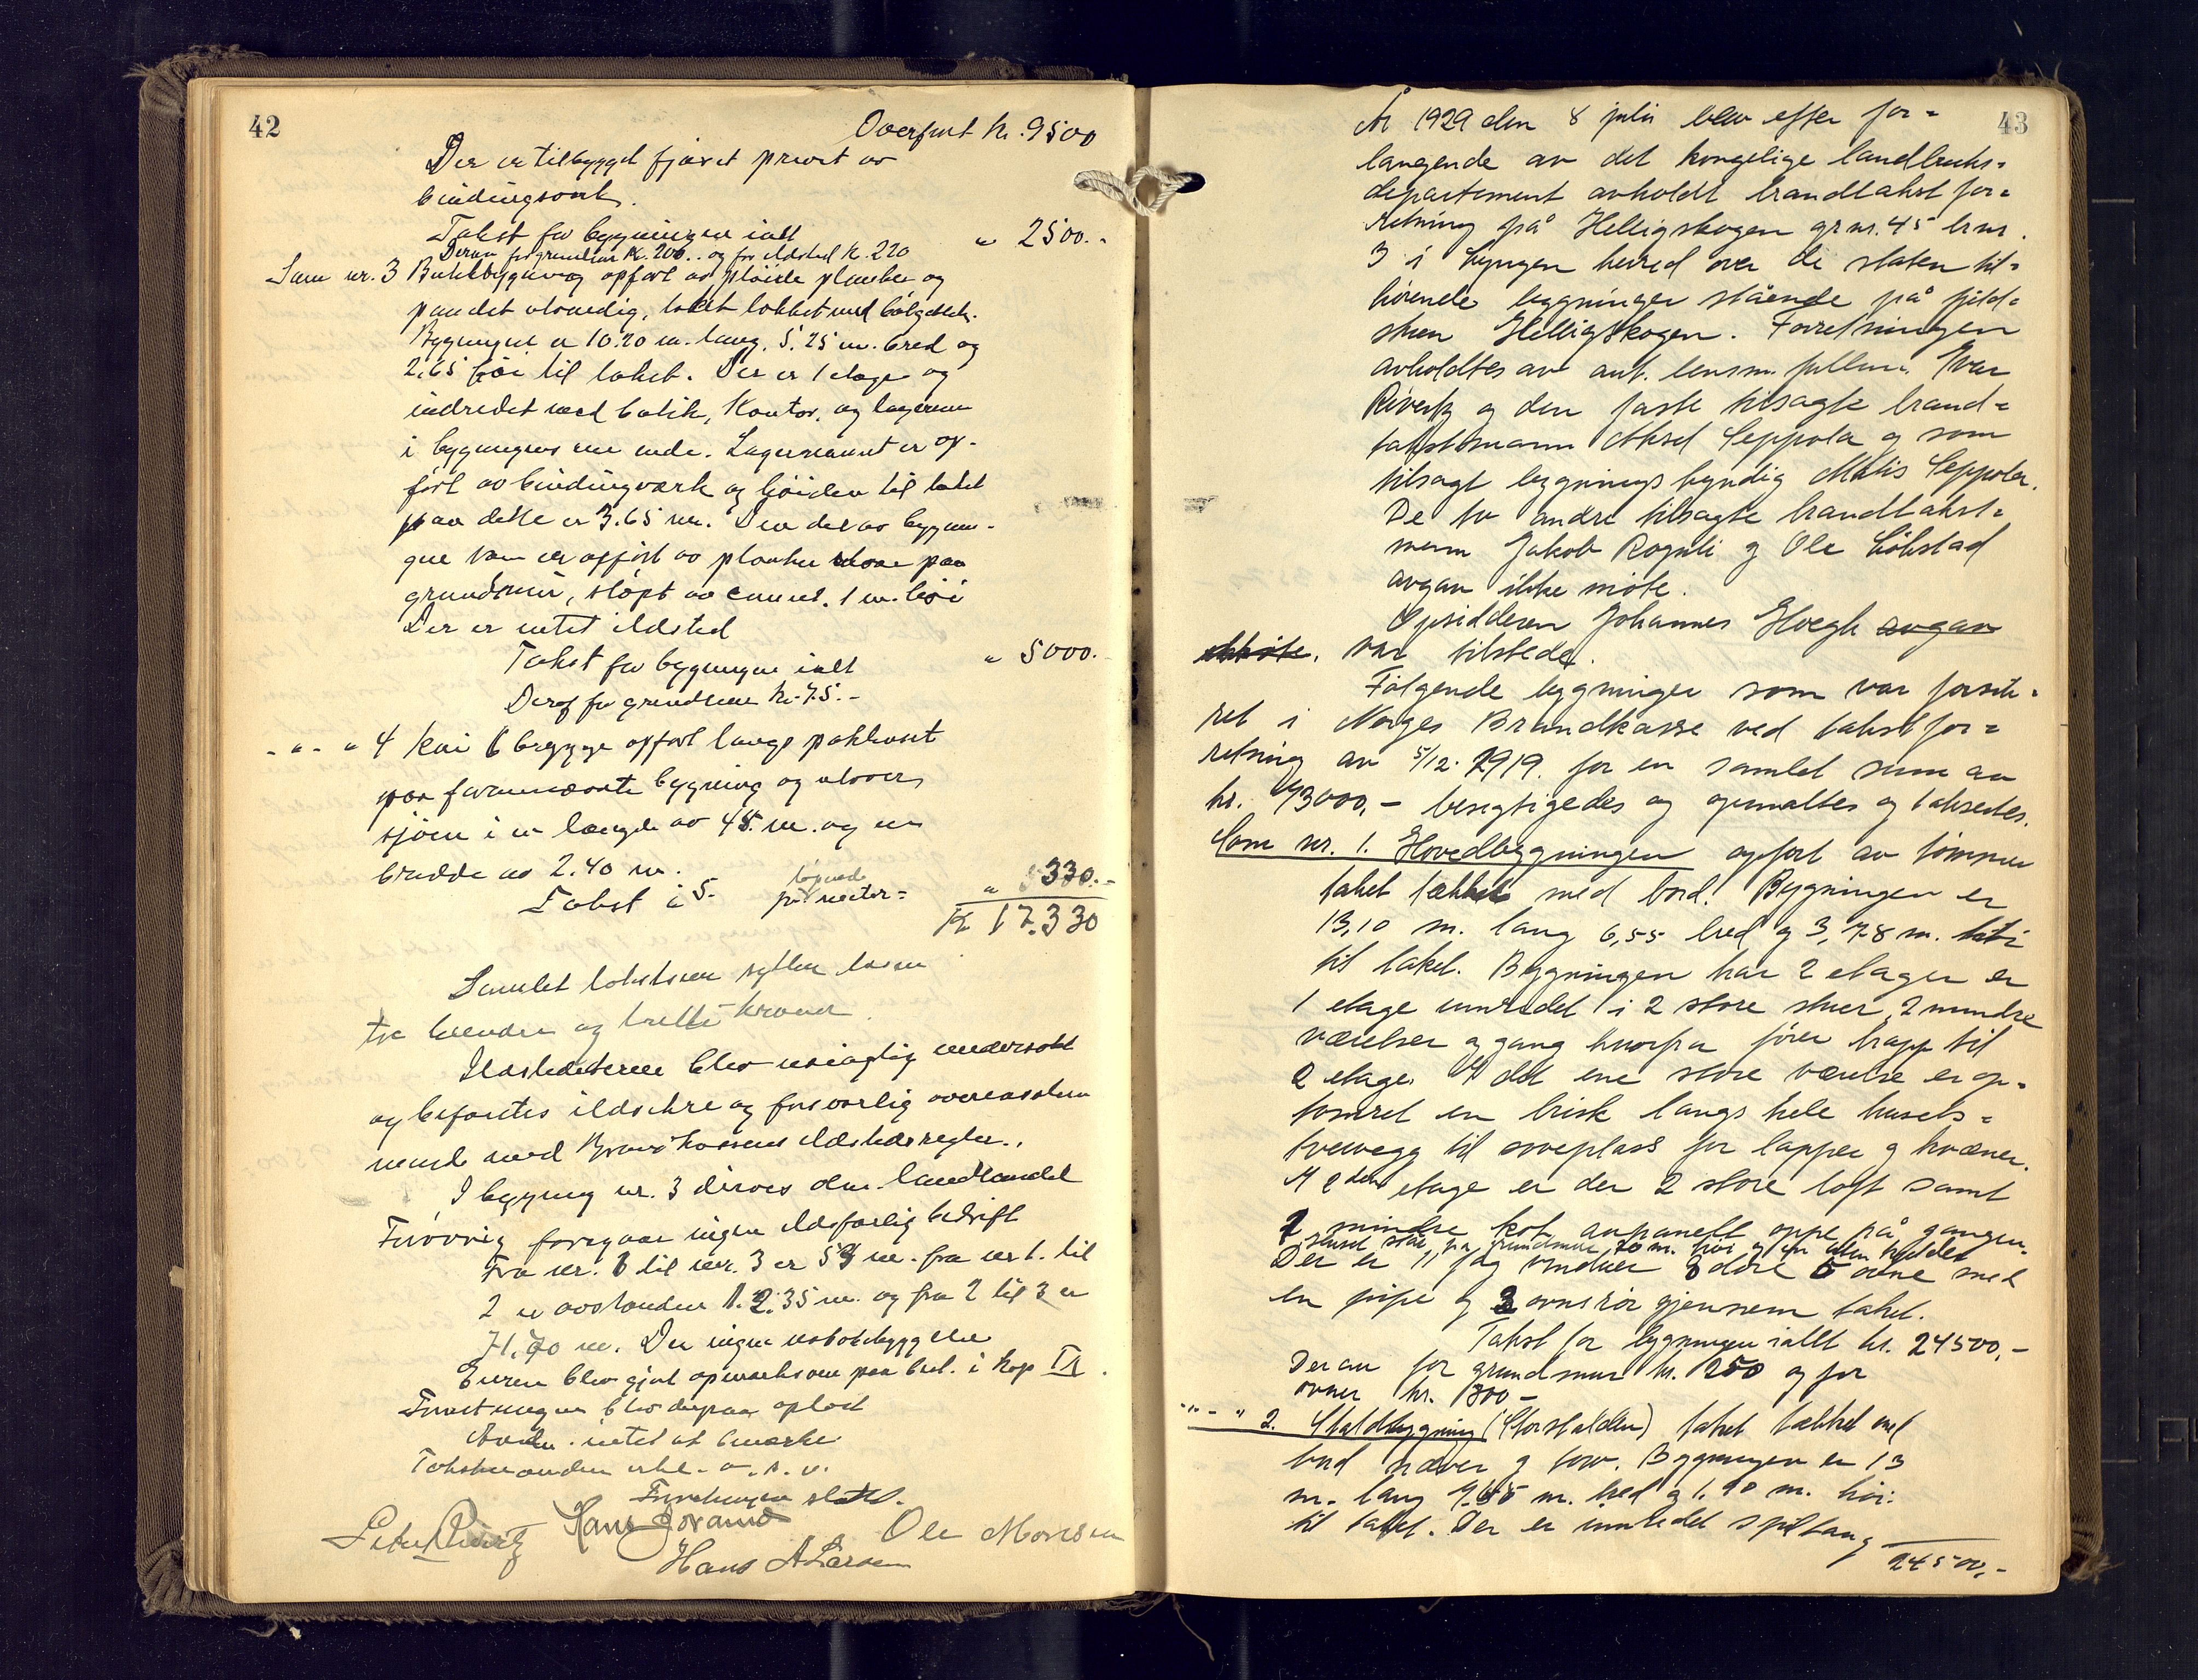 42
Overført kr. 9500
Der er tilbygget fjøset privet av
bindingsverk.
Takst for bygningen ialt " 2500.-
Derav for grundmur kr. 200.. og for ildsted kr. 220
Som nr. 3 Butikbygning opført av pløiede planker og
panelet utvendig, taket tækket med bølgeblek.
Bygningen er 10.20 m. lang, 5.25 m. bred og
2,65 høi til taket. Der er 1 etage og
indredet med butik, kontor, og lagerrum
i bygningens ene ende. Lagerrummet er op-
ført av bindingverk og høiden til taket
paa dette er 3.65 m. Den del av bygnin-
gen som er opført av planker staar paa
grundmur, støpt av cement, 1 m. høi
Der er intet ildsted
Takst for bygningen ialt " 5000.-
Derof for grundmur kr. 75.-
- " - " 4 Kai brygge opført langs pakhuset
paa forannævnte bygning og utover
sjøen i en længde av 45 m. og en
bredde av 2.40 m.
Takst à 5.- pr. løpende meter = " 330.-
Kr. 17.330
Samlet takstsum sytten tusen
tre hundre og tretti kroner.
Ildstederne blev nøiagtig undersøkt
og befantes ildsikre og forsvarlig overensstem
mende med Brandkassens ildstedsregler.
I bygning nr. 3 drives den landhandel
Forøvrig foregaar ingen ildsfarlig bedrift
Fra nr. 1 til nr. 3 er 59 m. fra nr 1. til
2 er avstanden 12.35 m. og fra 2 til 3 er
71.70 m. Der ingen nabobebyggelse
Eieren blev gjort opmerksom paa best. i kap IX.
Forretningen blev derpaa oplæst
Intet at bemerke
Takstmænden erkl. o. s. v.
Forretningen sluttet.
Peter Hans Jovand Ole Monsen
Hans A Larsen
43
År 1929 den 8 juli blev efter for-
langende av det kongelige landbruks-
departement avholdt brandtakst for-
retning på Helligskogen grnr. 45 brnr.
3 i Lyngen herred over de staten til-
hørende bygninger stående på fjeld-
stuen Helligskogen. Forretningen
avholdtes av aut. lensm. fullm. Ivar
Rivertz og den faste tilsagte brand-
takstmann Aksel Seppola og som
tilsagt bygningskyndig Matis Seppola.
De to andre tilsagte brandtakst-
menn Jakob Rognli og Ole Løkstad
avgav ikke møte.
Opsidderen Johannes Hoegh avgav
ikke møte. var tilstede.
Følgende bygninger som var forsik-
ret i Norges Brandkasse ved takstfor-
retning av 5/12. 1919. for en samlet sum av
kr. 43000,- besigtigedes og opmaltes og takseredes.
Som nr. 1. Hovedbygningen opført av tømmer
taket tækket med bord. Bygningen er
13,10 m. lang 6,55 bred og 3,78 m. høi
til taket. Bygningen har 2 etager er
1 etage innredet i 2 store stuer, 2 mindre
værelser og gang hvorfra fører trapp til
2 etage. I det ene store værelse er op-
tømret en brisk langs hele husets-
tvervegg til soveplass for lapper og kvæner.
I 2den etage er der 2 store loft samt
2 mindre kot avpanelt oppe på gangen.
Huset står på grundmur 70 m. høi og en alen bredde
Der er 11 fag vinduer 8 døre 5 ovne med
en pipe og 3 ovnsrør gjennem taket.
Takst for bygningen ialt kr. 24500,-
Derav for grundmur kr. 250 og for
ovner kr. 300-
- " - " 2. Staldbygning (Storstalden) taket tækket med
bord næver og torv. Bygningen er 13
m. lang 9.65 m. bred og 1.90 m. høi
til taket. Der er innredet spiltaug
24500,-